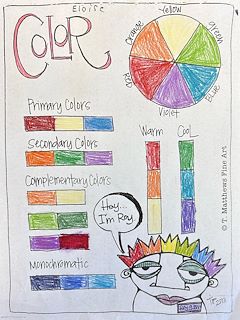 Eloise
COLOR
Yellow
Orange
green
Red
Blue
Violet
Primary Colors
Secondary Colors
Complementary Colors
Monochromatic
Warm
Cool
Hey...
I'm Roy
© T. Matthews Fine Art